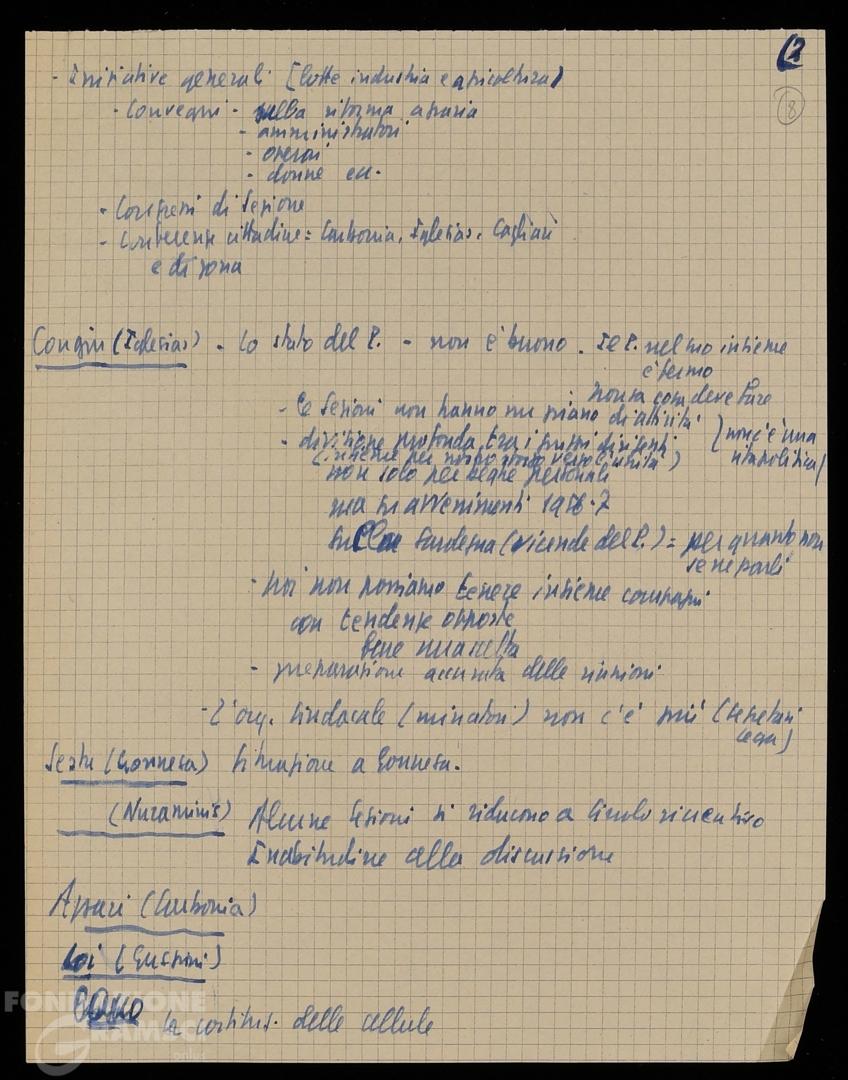 (2
8
- Iniziative generali [lotte industria e agricoltura)
- Convegni - sulla riforma agraria
- amministratori
- operai
- donne ecc.
- Congressi di Sezione
- Conferenze cittadine = Carbonia, Iglesias, Cagliari
e di zona
Congiu (Iglesias) - Lo stato del P. - non è buono. Il P. nel suo insieme
è fermo
non sa cosa deve fare
- Le Sezioni non hanno un piano di attività
- divisione profonda tra i gruppi dirigenti (non c'è una
(insieme per verso l'unità) vita politica)
non solo per beghe personali
ma su avvenimenti 1956-7
sulla Sardegna (vicende del P.) = per quanto non
se ne parli
- noi non possiamo tenere insieme compagni
con tendenze opposte
fare una scelta
- preparazione accurata delle riunioni
- L'org. sindacale (minatori) non c'è più (segretari
lega)
(Gonnesa) Situazione a Gonnesa.
(Nuraminis) Alcune Sezioni si riducono a Circolo ricreativo
Inabitudine alla discussione
(Carbonia)
Loi (Guspini)
La costituz. delle cellule
FONDAZIONE
GRAMSCI
onlus